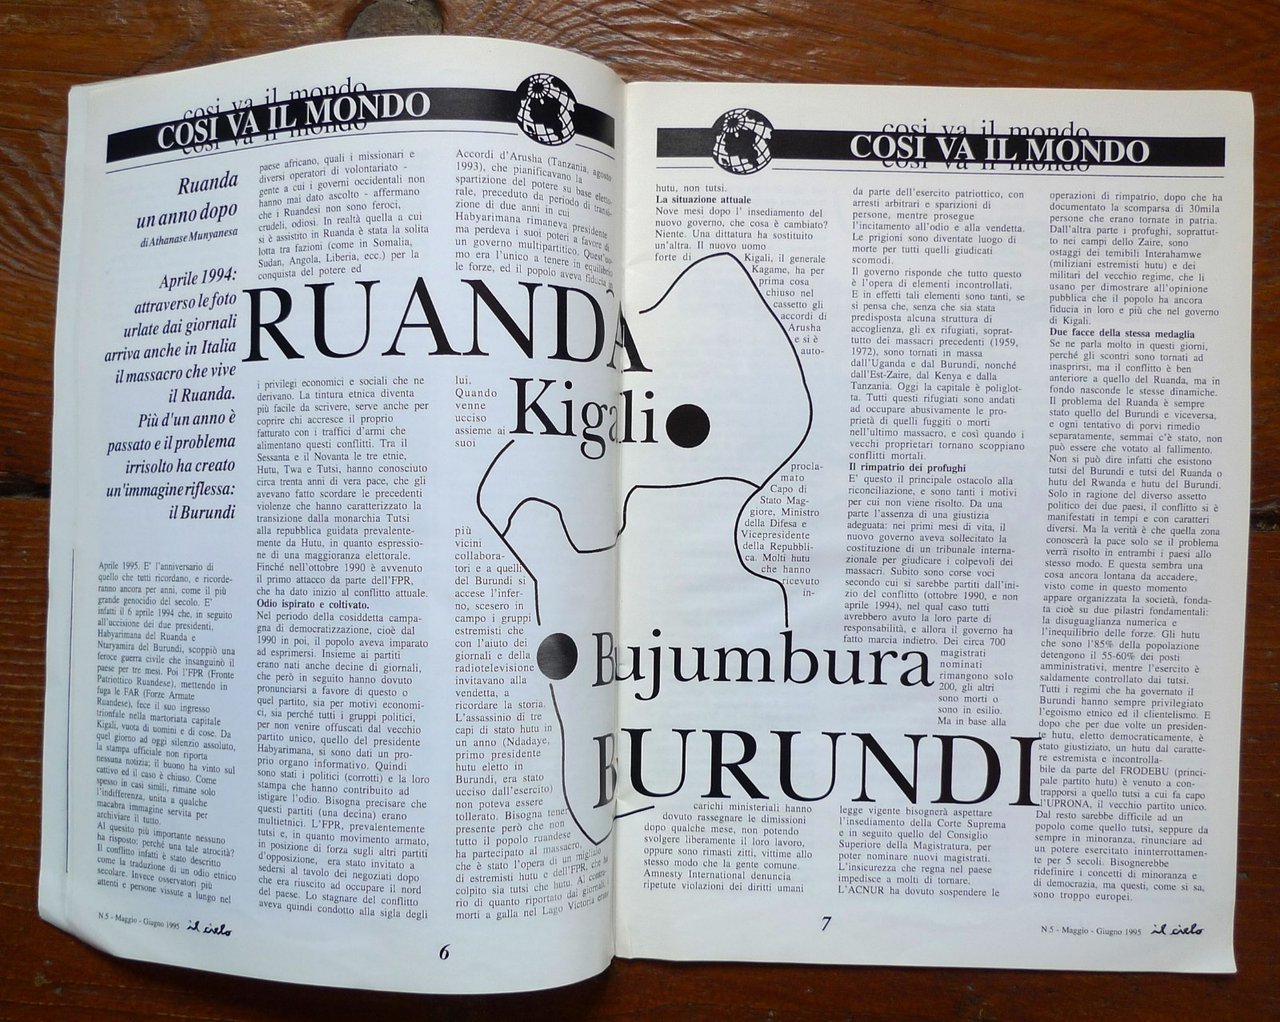 cosi va il mondo
COSI VA IL MONDO
cosi va il mondo
Ruanda
un anno dopo
di Athanase Munyanesa
Aprile 1994:
attraverso le foto
urlate dai giornali
arriva anche in Italia
il massacro che vive
il Ruanda.
Più d'un anno è
passato e il problema
irrisolto ha creato
un'immagine riflessa:
il Burundi
Aprile 1995. E' l'anniversario di
quello che tutti ricordano, e ricorde-
ranno ancora per anni, come il più
grande genocidio del secolo. E'
infatti il 6 aprile 1994 che, in seguito
all'uccisione dei due presidenti,
Habyarimana del Ruanda e
Ntaryamira del Burundi, scoppiò una
feroce guerra civile che insanguinò il
paese per tre mesi. Poi l'FPR (Fronte
Patriottico Ruandese), mettendo in
fuga le FAR (Forze Armate
Ruandese), fece il suo ingresso
trionfale nella martoriata capitale
Kigali, vuota di uomini e di cose. Da
quel giorno ad oggi silenzio assoluto,
la stampa ufficiale non riporta
nessuna notizia; il buono ha vinto sul
cattivo ed il caso è chiuso. Come
spesso in casi simili, rimane solo
l'indifferenza, unita a qualche
macabra immagine servita per
archiviare il tutto.
Al quesito più importante nessuno
ha risposto: perché una tale atrocità?
Il conflitto infatti è stato descritto
come la traduzione di un odio etnico
secolare. Invece osservatori più
attenti e persone vissute a lungo nel
paese africano, quali i missionari e
diversi operatori di volontariato -
gente a cui i governi occidentali non
hanno mai dato ascolto - affermano
che i Ruandesi non sono feroci,
crudeli, odiosi. In realtà quella a cui
si è assistito in Ruanda è stata la solita
lotta tra fazioni (come in Somalia,
Sudan, Angola, Liberia, ecc.) per la
conquista del potere ed
RUANDA
Kigali
i privilegi economici e sociali che ne
derivano. La tintura etnica diventa
più facile da scrivere, serve anche per
coprire chi accresce il proprio
fatturato con i traffici d'armi che
alimentano questi conflitti. Tra il
Sessanta e il Novanta le tre etnie,
Hutu, Twa e Tutsi, hanno conosciuto
circa trenta anni di vera pace, che gli
avevano fatto scordare le precedenti
violenze che hanno caratterizzato la
transizione dalla monarchia Tutsi
alla repubblica guidata prevalente-
mente da Hutu, in quanto espressio-
ne di una maggioranza elettorale.
Finché nell'ottobre 1990 è avvenuto
il primo attacco da parte dell'FPR,
che ha dato inizio al conflitto attuale.
Odio ispirato e coltivato.
Nel periodo della cosiddetta campa-
gna di democratizzazione, cioè dal
1990 in poi, il popolo aveva imparato
ad esprimersi. Insieme ai partiti
erano nati anche decine di giornali,
che però in seguito hanno dovuto
pronunciarsi a favore di questo o
quel partito, sia per motivi economi-
ci, sia perché tutti i gruppi politici,
per non venire offuscati dal vecchio
partito unico, quello del presidente
Habyarimana, si sono dati un pro-
prio organo informativo. Quindi
sono stati i politici (corrotti) e la loro
stampa che hanno contribuito ad
istigare l'odio. Bisogna precisare che
questi partiti (una decina) erano
multietnici. L'FPR, prevalentemente
tutsi e, in quanto movimento armato,
in posizione di forza sugli altri partiti
d'opposizione, era stato invitato a
sedersi al tavolo dei negoziati dopo
che era riuscito ad occupare il nord
del paese. Lo stagnare del conflitto
aveva quindi condotto alla sigla degli
Accordi d'Arusha (Tanzania, agosto
1993), che pianificavano la
spartizione del potere su base eletto-
rale, preceduto da periodo di transi-
zione di due anni in cui
Habyarimana rimaneva presidente
ma perdeva i suoi poteri a favore di
un governo multipartitico. Quest'uo-
mo era l'unico a tenere in equilibrio
le forze, ed il popolo aveva fiducia in
lui.
Quando
venne
ucciso
assieme ai
suoi
più
vicini
collabora-
tori e a quelli
del Burundi si
accese l'infer-
no, scesero in
campo i gruppi
estremisti che
con l'aiuto dei
giornali e della
radiotelevisione
invitavano alla
vendetta, a
ricordare la storia.
L'assassinio di tre
capi di stato hutu in
un anno (Ndadaye,
primo presidente
hutu eletto in
Burundi, era stato
ucciso dall'esercito)
non poteva essere
tollerato. Bisogna tener
presente però che non
tutto il popolo ruandese
ha partecipato al massacro,
che è stato l'opera di un migliaio
di estremisti hutu e dell'FPR, che ha
colpito sia tutsi che hutu. Al contra-
rio di quanto riportato dai giornali, i
morti a galla nel Lago Victoria erano
N.5 - Maggio - Giugno 1995 il cielo
6
cosi va il mondo
COSI VA IL MONDO
cosi va il mondo
hutu, non tutsi.
La situazione attuale
Nove mesi dopo l' insediamento del
nuovo governo, che cosa è cambiato?
Niente. Una dittatura ha sostituito
un'altra. Il nuovo uomo
forte di Kigali, il generale
Kagame, ha per
prima cosa
chiuso nel
cassetto gli
accordi di
Arusha
e si è
auto-
procla-
mato
Capo di
Stato Mag-
giore, Ministro
della Difesa e
Vicepresidente
della Repubbli-
ca. Molti hutu
che hanno
ricevuto
in-
Bujumbura
BURUNDI
carichi ministeriali hanno
dovuto rassegnare le dimissioni
dopo qualche mese, non potendo
svolgere liberamente il loro lavoro,
oppure sono rimasti zitti, vittime allo
stesso modo che la gente comune.
Amnesty International denuncia
ripetute violazioni dei diritti umani
da parte dell'esercito patriottico, con
arresti arbitrari e sparizioni di
persone, mentre prosegue
l'incitamento all'odio e alla vendetta.
Le prigioni sono diventate luogo di
morte per tutti quelli giudicati
scomodi.
Il governo risponde che tutto questo
è l'opera di elementi incontrollati.
E in effetti tali elementi sono tanti, se
si pensa che, senza che sia stata
predisposta alcuna struttura di
accoglienza, gli ex rifugiati, soprat-
tutto dei massacri precedenti (1959,
1972), sono tornati in massa
dall'Uganda e dal Burundi, nonché
dall'Est-Zaire, dal Kenya e dalla
Tanzania. Oggi la capitale è poliglot-
ta. Tutti questi rifugiati sono andati
ad occupare abusivamente le pro-
prietà di quelli fuggiti o morti
nell'ultimo massacro, e così quando i
vecchi proprietari tornano scoppiano
conflitti mortali.
Il rimpatrio dei profughi
E' questo il principale ostacolo alla
riconciliazione, e sono tanti i motivi
per cui non viene risolto. Da una
parte l'assenza di una giustizia
adeguata: nei primi mesi di vita, il
nuovo governo aveva sollecitato la
costituzione di un tribunale interna-
zionale per giudicare i colpevoli dei
massacri. Subito sono corse voci
secondo cui si sarebbe partiti dall'ini-
zio del conflitto (ottobre 1990, e non
aprile 1994), nel qual caso tutti
avrebbero avuto la loro parte di
responsabilità, e allora il governo ha
fatto marcia indietro. Dei circa 700
magistrati
nominati
rimangono solo
200, gli altri
sono morti o
sono in esilio.
Ma in base alla
legge vigente bisognerà aspettare
l'insediamento della Corte Suprema
e in seguito quello del Consiglio
Superiore della Magistratura, per
poter nominare nuovi magistrati.
L'insicurezza che regna nel paese
impedisce a molti di tornare.
L'ACNUR ha dovuto sospendere le
operazioni di rimpatrio, dopo che ha
documentato la scomparsa di 30mila
persone che erano tornate in patria.
Dall'altra parte i profughi, soprattut-
to nei campi dello Zaire, sono
ostaggi dei temibili Interahamwe
(miliziani estremisti hutu) e dei
militari del vecchio regime, che li
usano per dimostrare all'opinione
pubblica che il popolo ha ancora
fiducia in loro e più che nel governo
di Kigali.
Due facce della stessa medaglia
Se ne parla molto in questi giorni,
perché gli scontri sono tornati ad
inasprirsi, ma il conflitto è ben
anteriore a quello del Ruanda, ma in
fondo nasconde le stesse dinamiche.
Il problema del Ruanda è sempre
stato quello del Burundi e viceversa,
e ogni tentativo di porvi rimedio
separatamente, semmai c'è stato, non
può essere che votato al fallimento.
Non si può dire infatti che esistono
tutsi del Burundi e tutsi del Ruanda o
hutu del Rwanda e hutu del Burundi.
Solo in ragione del diverso assetto
politico dei due paesi, il conflitto si è
manifestati in tempi e con caratteri
diversi. Ma la verità è che quella zona
conoscerà la pace solo se il problema
verrà risolto in entrambi i paesi allo
stesso modo. E questa sembra una
cosa ancora lontana da accadere,
visto come in questo momento
appare organizzata la società, fonda-
ta cioè su due pilastri fondamentali:
la disuguaglianza numerica e
l'inequilibrio delle forze. Gli hutu
che sono l'85% della popolazione
detengono il 55-60% dei posti
amministrativi, mentre l'esercito è
saldamente controllato dai tutsi.
Tutti i regimi che ha governato il
Burundi hanno sempre privilegiato
l'egoismo etnico ed il clientelismo. E
dopo che per due volte un presiden-
te hutu, eletto democraticamente, è
stato giustiziato, un hutu dal caratte-
re estremista e incontrolla-
bile da parte del FRODEBU (princi-
pale partito hutu) è venuto a con-
trapporsi a quello tutsi a cui fa capo
l'UPRONA, il vecchio partito unico.
Dal resto sarebbe difficile ad un
popolo come quello tutsi, seppure da
sempre in minoranza, rinunciare ad
un potere esercitato ininterrottamen-
te per 5 secoli. Bisognerebbe
ridefinire i concetti di minoranza e
di democrazia, ma questi, come si sa,
sono troppo europei.
7
N.5 - Maggio - Giugno 1995 il cielo